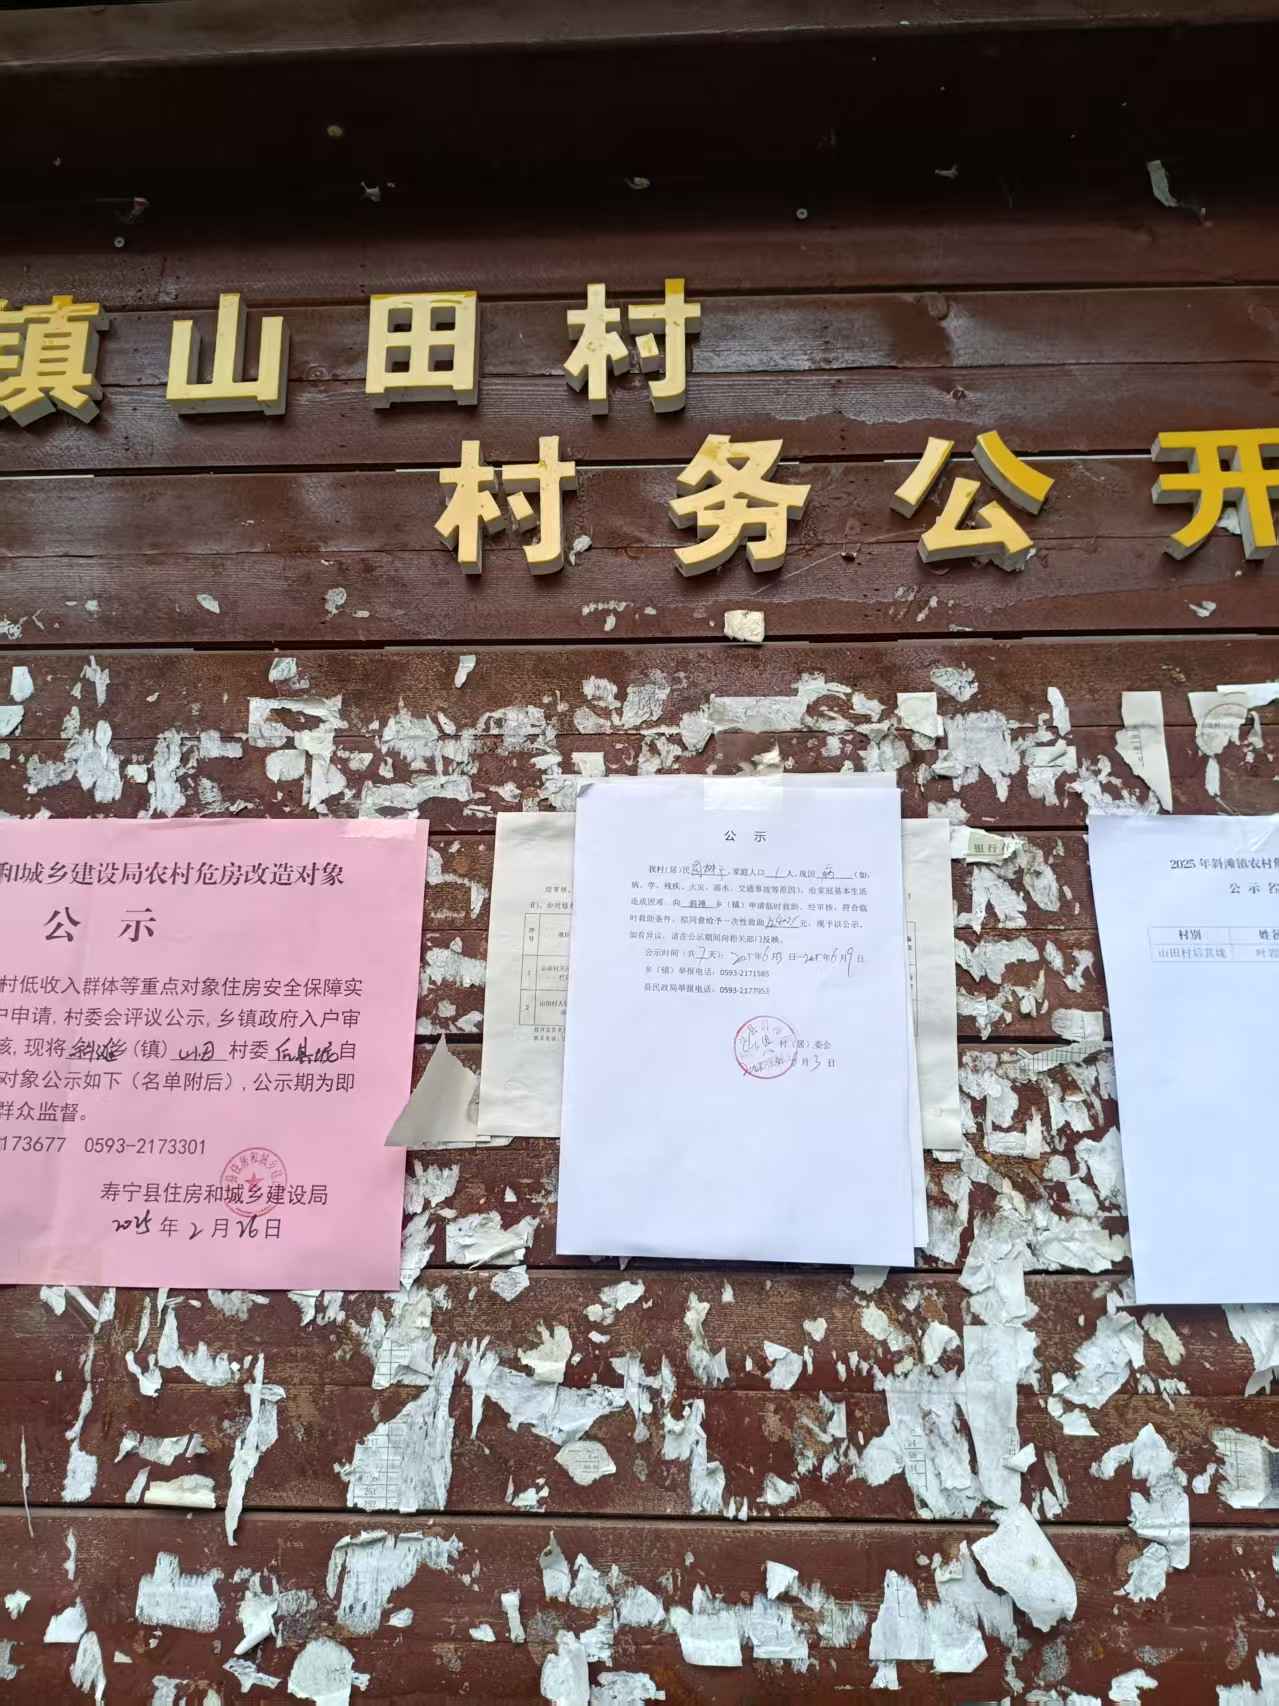 镇山田村
村务公开
和城乡建设局农村危房改造对象
公 示
村低收入群体等重点对象住房安全保障实
户申请, 村委会评议公示, 乡镇政府入户审
核, 现将 斜滩 乡(镇) 山田 村委 自
对象公示如下（名单附后）, 公示期为即
群众监督。
173677 0593-2173301
寿宁县住房和城乡建设局
2025 年 2 月 26 日
公 示
我村(居)民 , 家庭人口 1 人, 现因 病 (如:
病、学、残疾、火灾、溺水、交通事故等原因), 给家庭基本生活
造成困难, 向 斜滩 乡（镇）申请临时救助。经审核, 符合临
时救助条件, 拟同意给予一次性救助 元, 现予以公示,
如有异议, 请在公示期间向相关部门反映。
公示时间 (共 7 天): 2025年6月3日—2025年6月9日
乡（镇）举报电话: 0593-2171585
县民政局举报电话: 0593-2177953
村（居）委会
月 3 日
序号
1
2
银行存
2025 年斜滩镇农村
公 示 名
村别 姓名
山田村后其垅 叶